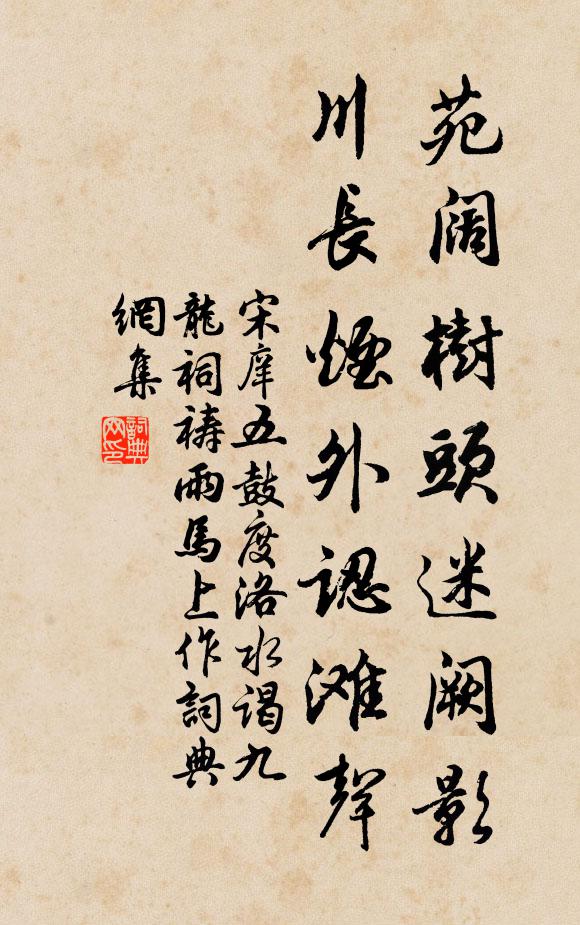 苑阔樹頭迷阙影
川長煙外認滩聲
宋庠五鼓度洛水謁九
龍祠禱雨馬上作詞典
網集
詞典
网印